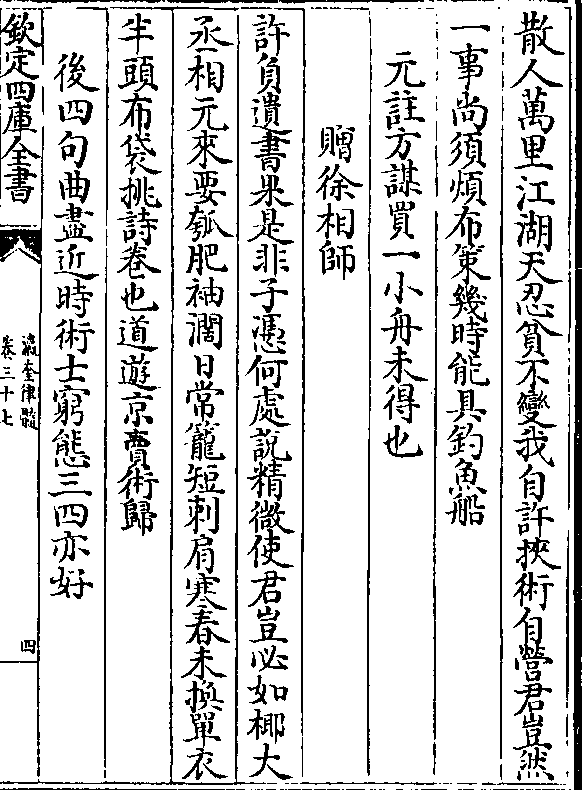 散人萬里江湖天忍貧不變我自許挾術自營君豈然
一事尚須煩布策幾時能具釣魚船
元註方謀買一小舟未得也
贈徐相師
許負遺書果是非子憑何處說精微使君豈必如椰大
丞相元來要瓠肥袖濶日常籠短刺肩寒春未換單衣
半頭布袋挑詩卷也道遊京賣術歸
後四句曲盡近時術士窮態三四亦好
欽定四庫全書
瀛奎律髓
卷三十七
四